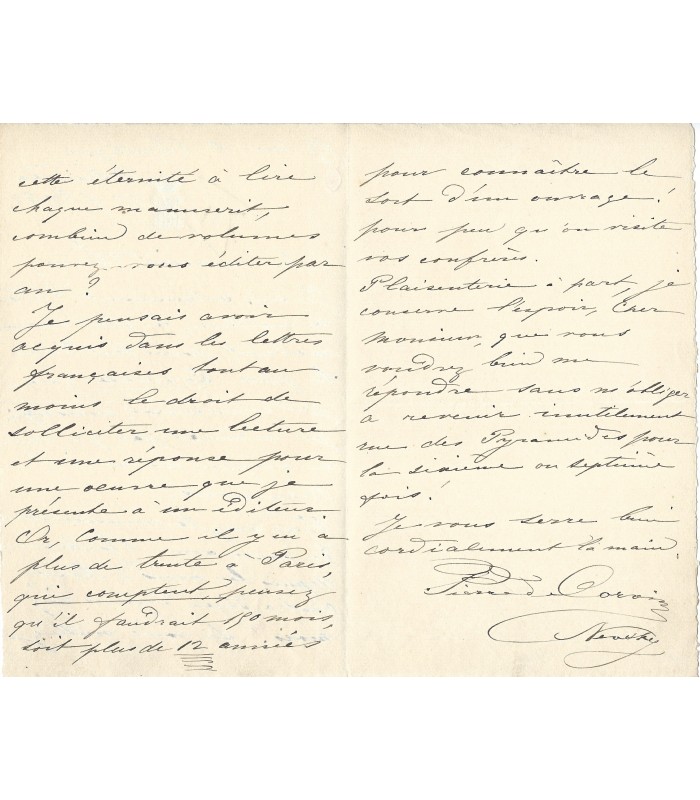 cette éternité à lire
chaque manuscrit,
combien de volumes
pouvez-vous éditer par
an ?
Je pensais avoir
acquis dans les lettres
françaises tout au
moins le droit de
solliciter une lecture
et une réponse pour
une oeuvre que je
présente à un éditeur
Or, comme il y en a
plus de trente à Paris,
qui comptent, pensez
qu'il faudrait 150 mois,
soit plus de 12 années
pour connaître le
sort d'un ouvrage !
pour peu qu'on visite
vos confrères.
Plaisenterie à part, je
conserve l'espoir, Cher
monsieur, que vous
voudrez bien me
répondre sans m'obliger
à revenir inutilement
rue des Pyramides pour
la sixième ou septième
fois !
Je vous serre bien
cordialement la main.
Pierre de Corvin